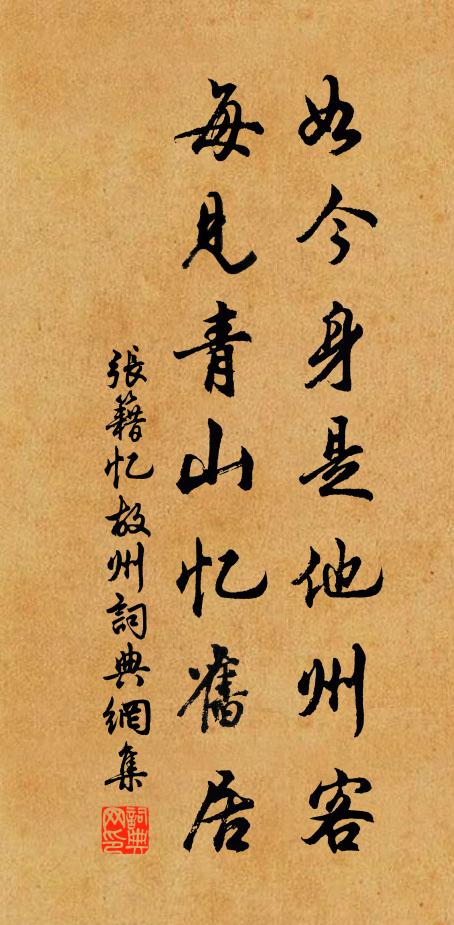 如今身是他州客
每见青山忆舊居
張籍忆故州詞典網集
詞典网印